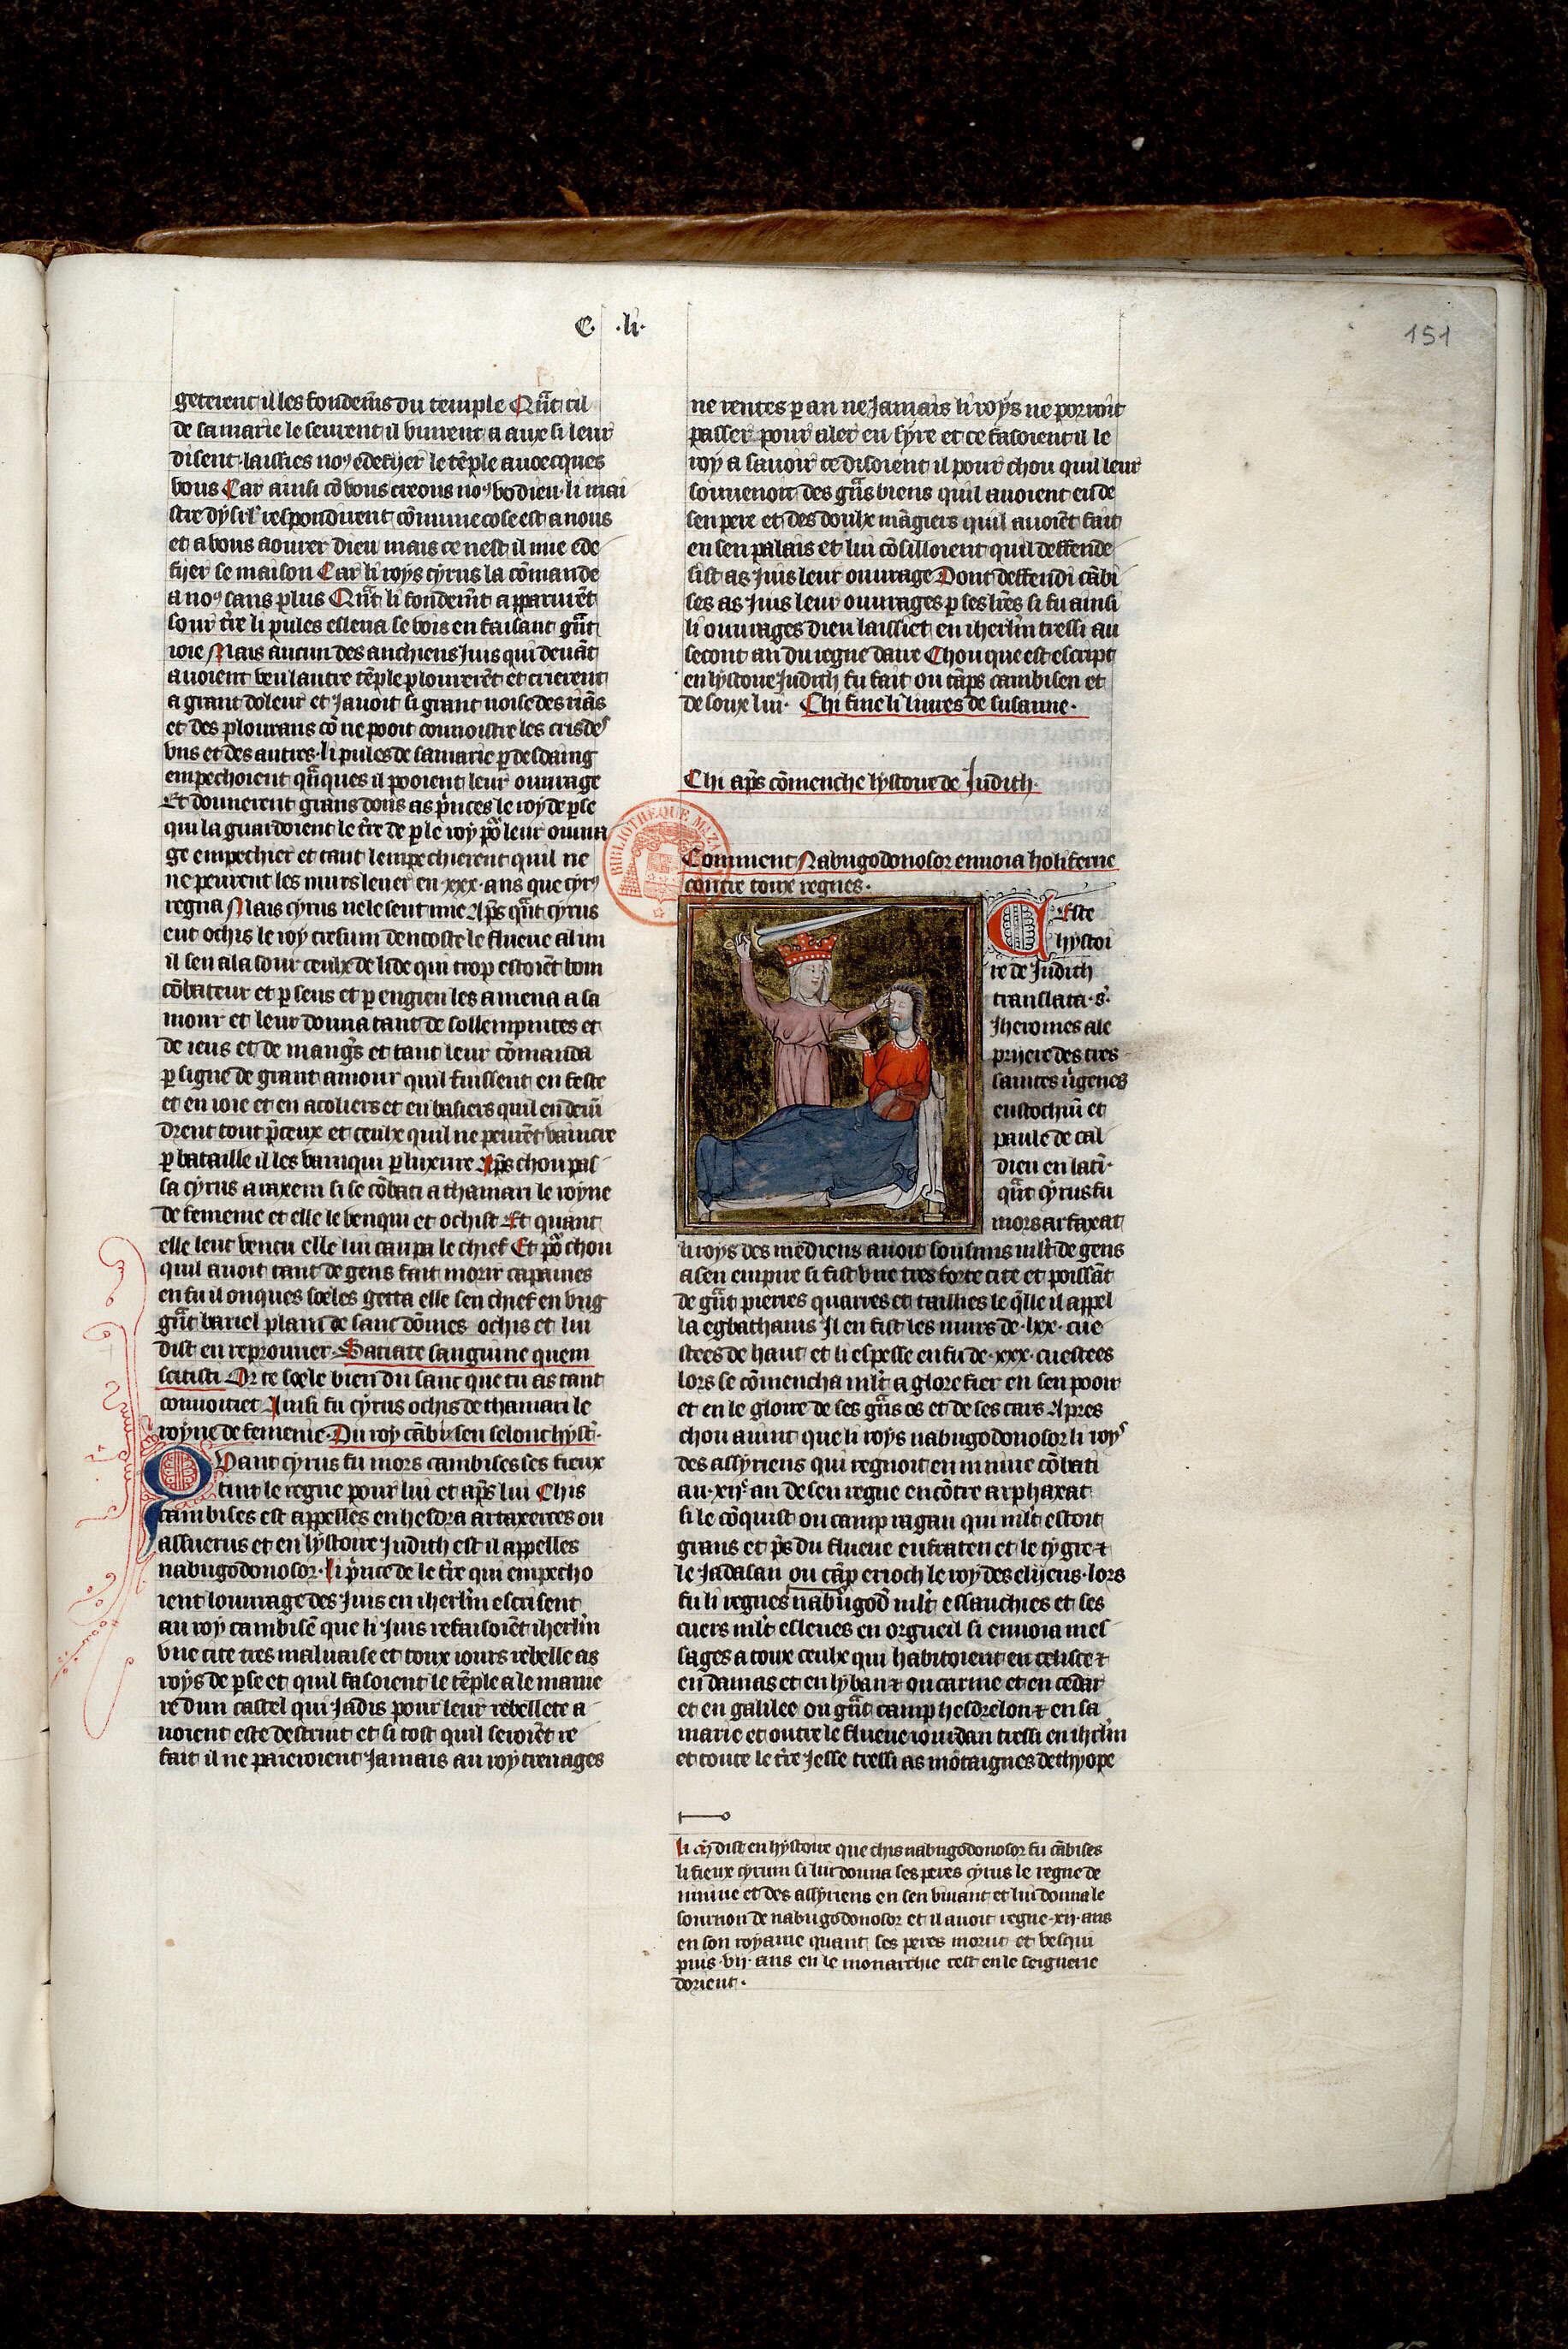 C. .li.
151
geterent il les fondemẽs du temple Qñt cil
de samarie le seurent il vinrent a aux si leur
disent laissies noꝰ edefijer le tẽple auoecques
vous Car ainsi cõ vous creons noꝰ vo dieu li mai
stre dysrl' respondirent cõmune cose est a nous
et a vous aourer dieu mais ce nest il mie ede
fijer se maison Car li roys cyrus la cõmande
a noꝰ sans plus Qñt li fondemẽt apparurẽt
sour tr̃e li pules esleua se vois en faisant gñt
ioie Mais aucun des anchiens Juis qui deuãt
auoient veu lautre tẽple plourerẽt et crierent
a grant doleur et J auoit si grant noise des riãs
et des plourans cõ ne pooit connoistre les cris des
vns et des autres. li pules de samarie p desdaing
empechoient qãques il pooient leur ouurage
Et donnerent grans dons as p̃nces le roy de pse
qui la guardoient le tr̃e de p le roy po' leur ouura
ge empechier et tant lempechierent quil ne
ne peurent les murs leuer en .xxx. ans que cyrꝰ
regna Mais cyrus ne le seut mie Ap̃s qñt cyrus
eut ochis le roy cresum dencoste le flueue alim
il sen ala sour ceulx de lide qui trop estoiẽt boin
cõbateur et p sens et p engien les amena a sa
mour et leur donna tant de sollempnites et
de ieus et de mang̃s et tant leur cõmanda
p signe de grant amour quil fuissent en feste
et en ioie et en acoliers et en basiers quil en deui
drent tout p̃ceux et ceulx quil ne peurẽt vaincre
p bataille il les vainqui p luxure Ap̃s chou pas
sa cyrus araxem si se cõbati a thamari le royne
de femenie et elle le venqui et ochist Et quant
elle leut vencu elle lui caupa le chief Et po' chou
quil auoit tant de gens fait morir capaines
en fu il onques soeles getta elle sen chief en vng
gñt bariel plain de sanc dõmes ochis et lui
dist en reprouuier. Satiate sanguine quem
scitisti Or te soele bien du sanc que tu as tant
conuoitiet Ainsi fu cyrus ochis de thamari le
royne de femenie. Du roy cãbisen selonc hyst'.
Quant cyrus fu mors cambises ses fieux
tint le regne pour lui et ap̃s lui Chis
cambises est appelles en hesdra artaxerces ou
assuerus et en lystoire Judith est il appelles
nabugodonosor. li p̃nce de le tr̃e qui empecho
ient louurage des Juis en iherlm̃ escrisent
au roy cambisẽ que li Juis refaisoiẽt iherlm̃
vne cite tres maluaise et toux iours rebelle as
roys de pse et quil faisoient le tẽple a le manie
re dun castel qui Jadis pour leur rebellete a
uoient este destruit et si tost quil seroiẽt re
fait il ne paieroient Jamais au roy treuages
ne rentes p an ne Jamais li roys ne porroit
passer pour aler en syre et ce faisoient il le
roy a sauoir ce disoient il pour chou quil leur
souuenoit des gñs biens quil auoient eu de
sen pere et des doulx mãgiers quil auoiẽt fait
en sen palais et lui cõsilloient quil deffende
sist as Juis leur ouurage Dont deffendi cãbi
ses as Juis leur ouurages p ses lr̃es si fu ainsi
li ouurages dieu laissiet en iherlm̃ tressi au
secont an du regne daire Chou que est escript
en lystoire Judith fu fait ou tãps cambisen et
desoux lui. Chi fine li liures de susanne.
Chi ap̃s cõmenche lystoire de Judith.
Comment Nabugodonosor enuoia holiferne
contre toux regnes.
Ceste
hystoi
re de Judith
translata .s'.
Jheromes a le
prijere des tres
saintes v̓genes
eustochiũ et
paule de cal
dieu en latĩ.
qñt cyrus fu
mors arfaxat
li roys des mediens auoit sousmis mlt̃ de gens
a sen empire si fist vne tres forte cite et poissãt
de gñt pieries quarres et taillies le qlle il appel
la egbathanis Il en fist les murs de .lxx. cue
stees de haut et li espesse en fu de .xxx. cuestees
lors se cõmencha mlt̃ a glorefier en sen pooir
et en le gloire de ses gñs os et de ses cars Apres
chou auint que li roys nabugodonosor li roys
des assyriens qui regnoit en niniue cõbati
au .xij.ͤ an de seu regne encõtre arphaxat
si le cõquist ou camp ragau qui mlt̃ estoit
grans et p̃s du flueue eufraten et le tygre ⁊
le Jadasan ou cãp erioch le roy des elijens. lors
fu li regnes nabugod̃ mlt̃ essauchies et ses
cuers mlt̃ esleues en orgueil si enuoia mes
sages a toux ceulx qui habitoient en celiste ⁊
en damas et en lyban ⁊ ou carme et en cedar
et en galilee ou gñt camp hesdrelon ⁊ en sa
marie et outre le flueue iourdan tressi en ihrlm̃
et toute le tr̃e Jesse tressi as mõtaignes dethyope
li mẽ dist en hystoire que chis nabugodonosor fu cãbises
li fieux cyrum si lui donna ses peres cyrus le regne de
niniue et des assyriens en sen viuant et lui donna le
sournon de nabugodonosor et il auoit regne .xij. ans
en son royame quant ses peres morut et vesqui
puis .vij. ans en le monarchie cest en le seignerie
dorient.
BIBLIOTHEQUE MAZA